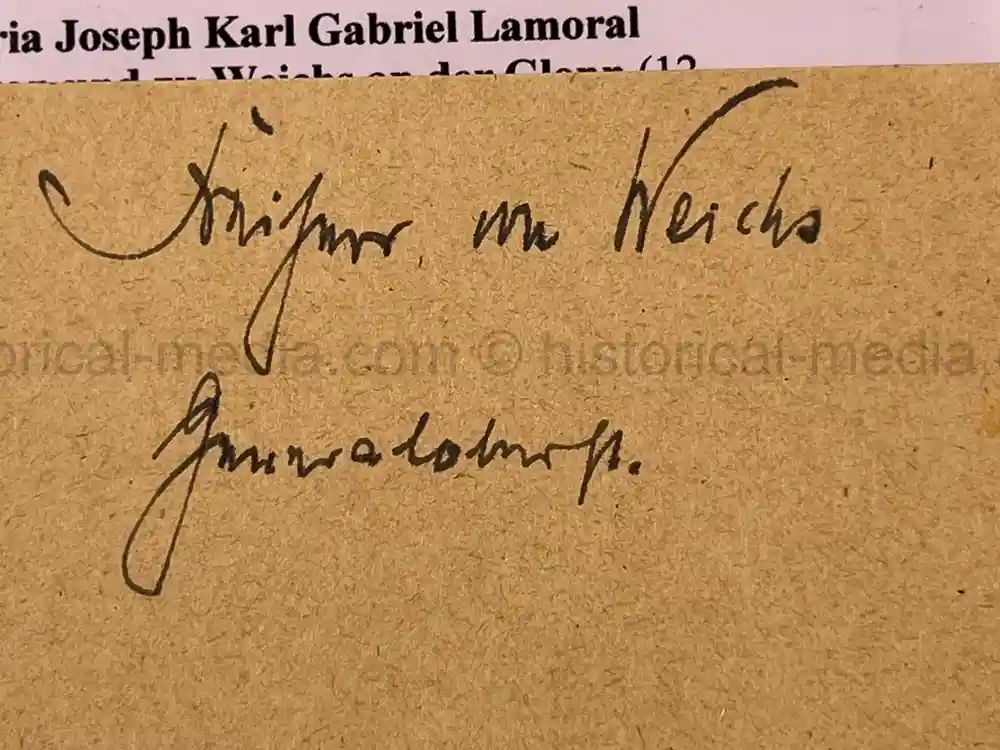 ria Joseph Karl Gabriel Lamoral
und zu Weichs an der Glonn (12
Freiherr von Weichs
orical-media.com © historical-media.
Generaloberst.